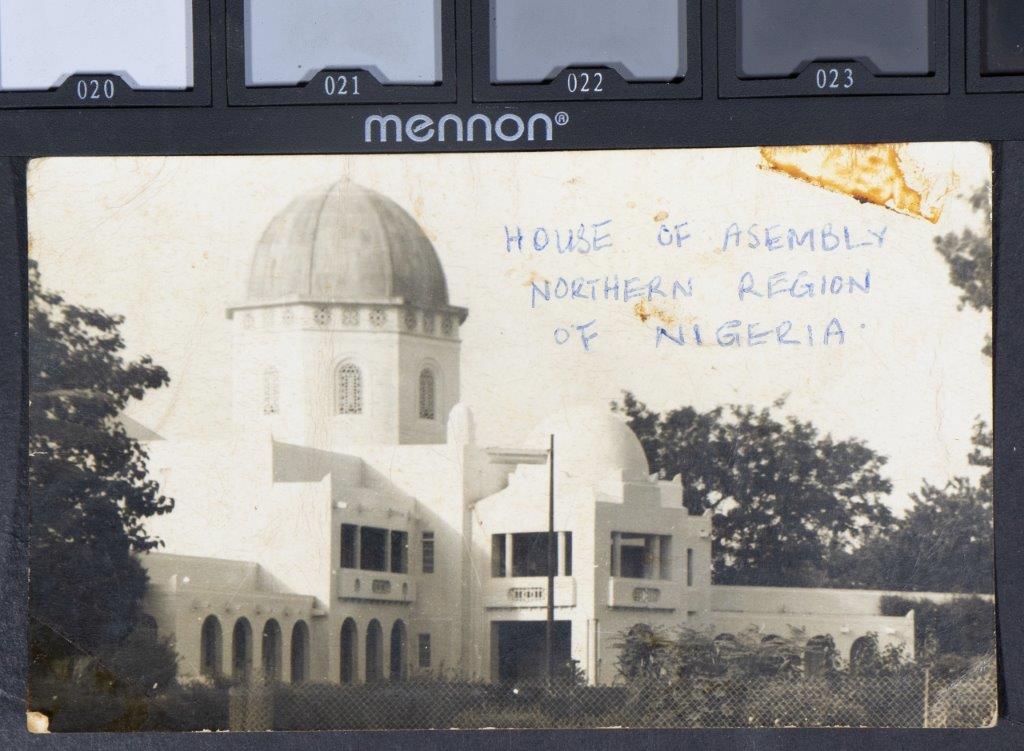 020 021 022 023
mennon®
HOUSE OF ASEMBLY
NORTHERN REGION
OF NIGERIA.